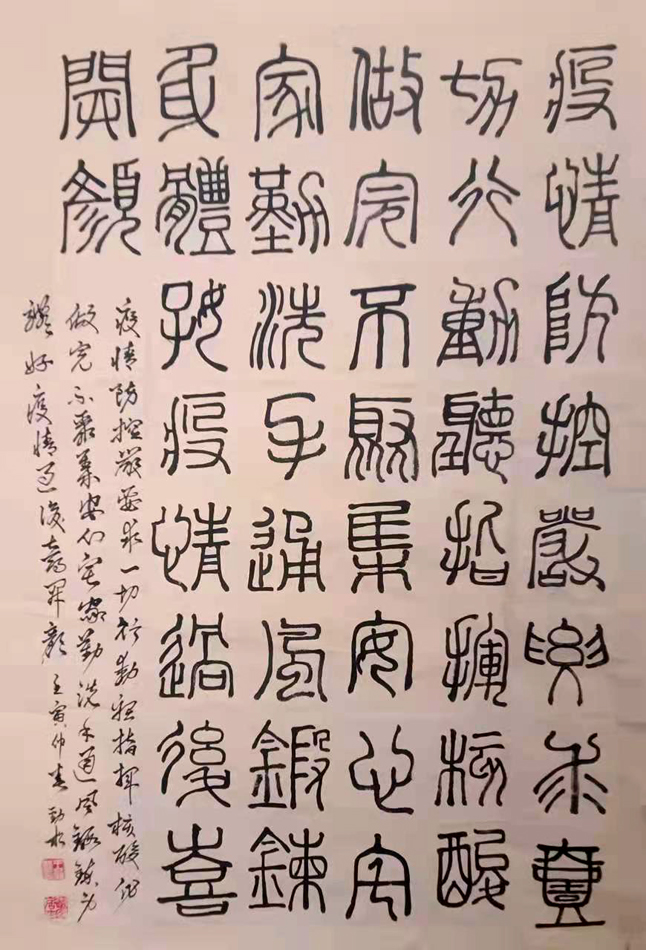 疫情防控嚴要求壹
切行動聽指揮核酸
做完不聚集安心宅
家勤洗手通風鍛鍊
身體好疫情過後喜
開顏
疫情防控嚴要求一切行動聽指揮核酸
做完不聚集安心宅家勤洗手通風鍛鍊身
體好疫情過後喜開顏 壬寅仲春